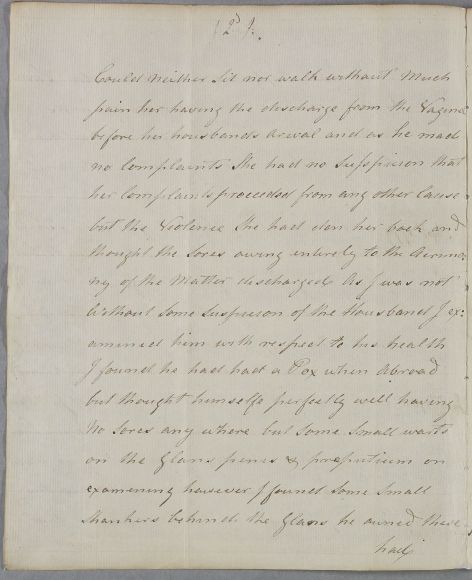 ( 2d ).
Could neither Sit nor walk without Much
pain her having the discharge from the Vagina
before her housbands arival and as he made
no Complaints She had no Suspision that
her Complaints proceeded from any other Cause
but the Violence She had don her back and
thought the Sores owing entirely to the Acrimo-
ny of the Matter discharged As I was not
Without Some Suspision of the Housband I ex:
amined him with respect to his health
I found he had had a Pox when abroad
but thought himselfe perfectly well having
No Sores any where but Some Small warts
on the Glans penis & preputium on
examening however I found Some Small
Shankers behind the Glans he owned these
had